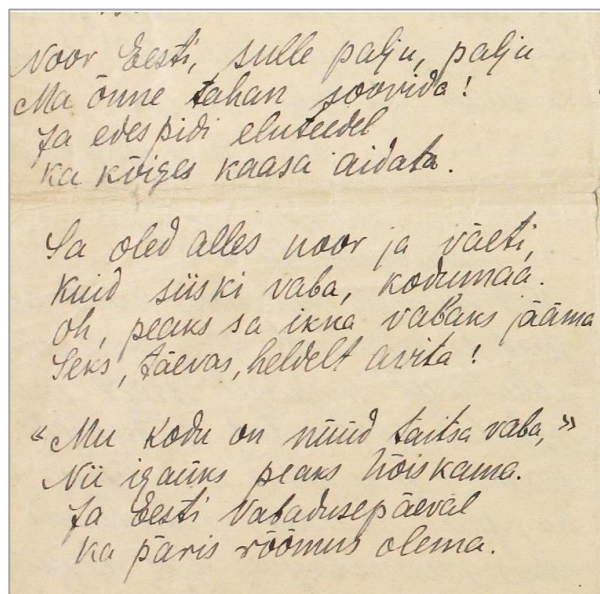 Noor Eesti, sulle palju, palju
Ma õnne tahan soovida!
Ja edespidi eluteedel
ka kõiges kaasa aidata.
Sa oled alles noor ja väeti,
kuid siiski vaba, kodumaa.
oh, peaks sa ikna vabaks jääma
Seks, täevas, heldelt avita!
"Mu kodu on nüüd täitsa vaba,"
Nii igaüks peaks hõiskama.
Ja Eesti Vabadusepäeval
ka päris rõõmus olema.